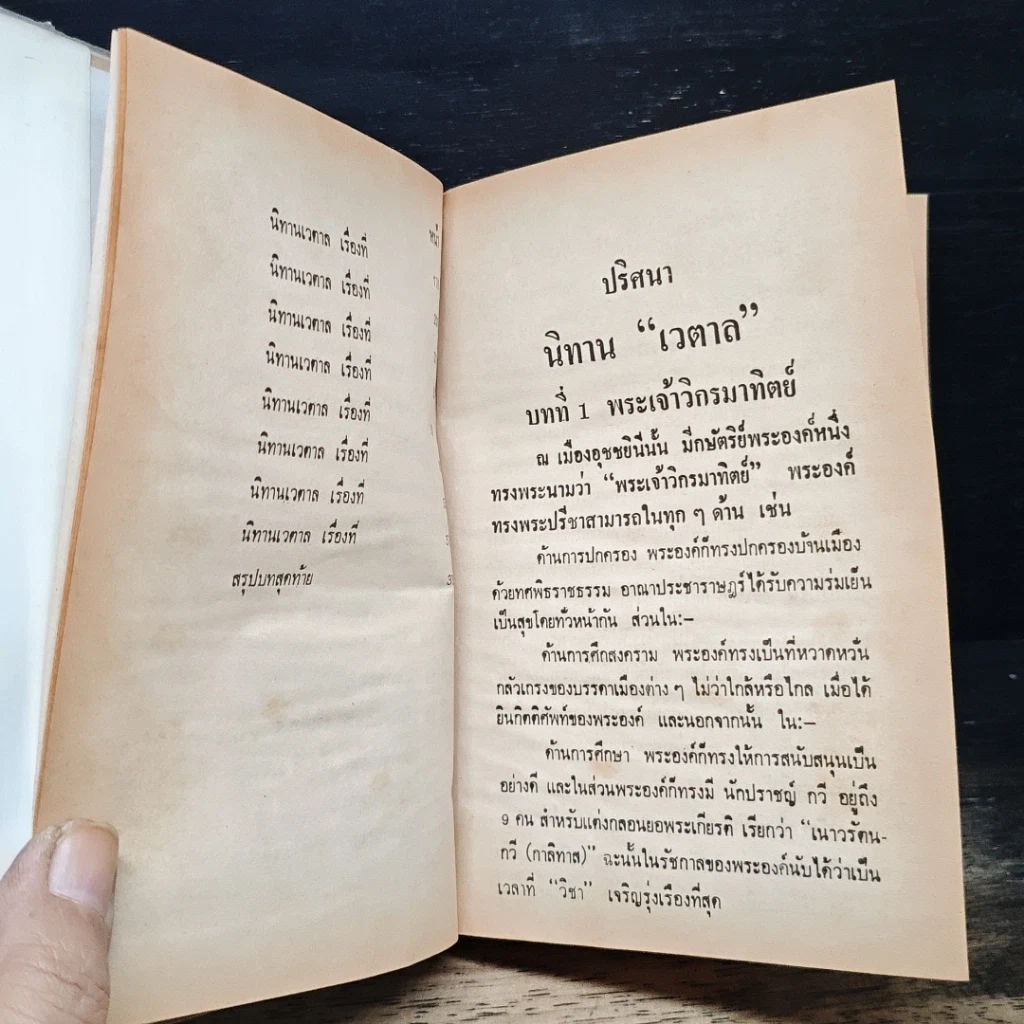 นิทานเวตาล เรื่องที่
นิทานเวตาล เรื่องที่
นิทานเวตาล เรื่องที่
นิทานเวตาล เรื่องที่
นิทานเวตาล เรื่องที่
นิทานเวตาล เรื่องที่
นิทานเวตาล เรื่องที่
นิทานเวตาล เรื่องที่
สรุปบทสุดท้าย
ปริศนา
นิทาน “เวตาล”
บทที่ 1 พระเจ้าวิกรมาทิตย์
ณ เมืองอุชชยินีนั้น มีกษัตริย์พระองค์หนึ่ง
ทรงพระนามว่า “พระเจ้าวิกรมาทิตย์” พระองค์
ทรงพระปรีชาสามารถในทุก ๆ ด้าน เช่น
ด้านการปกครอง พระองค์ก็ทรงปกครองบ้านเมือง
ด้วยทศพิธราชธรรม อาณาประชาราษฎร์ได้รับความร่มเย็น
เป็นสุขโดยทั่วหน้ากัน ส่วนใน:—
ด้านการศึกสงคราม พระองค์ทรงเป็นที่หวาดหวั่น
กลัวเกรงของบรรดาเมืองต่าง ๆ ไม่ว่าใกล้หรือไกล เมื่อได้
ยินกิตติศัพท์ของพระองค์ และนอกจากนั้น ใน:—
ด้านการศึกษา พระองค์ก็ทรงให้การสนับสนุนเป็น
อย่างดี และในส่วนพระองค์ก็ทรงมี นักปราชญ์ กวี อยู่ถึง
9 คน สำหรับแต่งกลอนยอพระเกียรติ เรียกว่า “เนาวรัตน-
กวี (กาลิทาส)” ฉะนั้นในรัชกาลของพระองค์นับได้ว่าเป็น
เวลาที่ “วิชา” เจริญรุ่งเรืองที่สุด